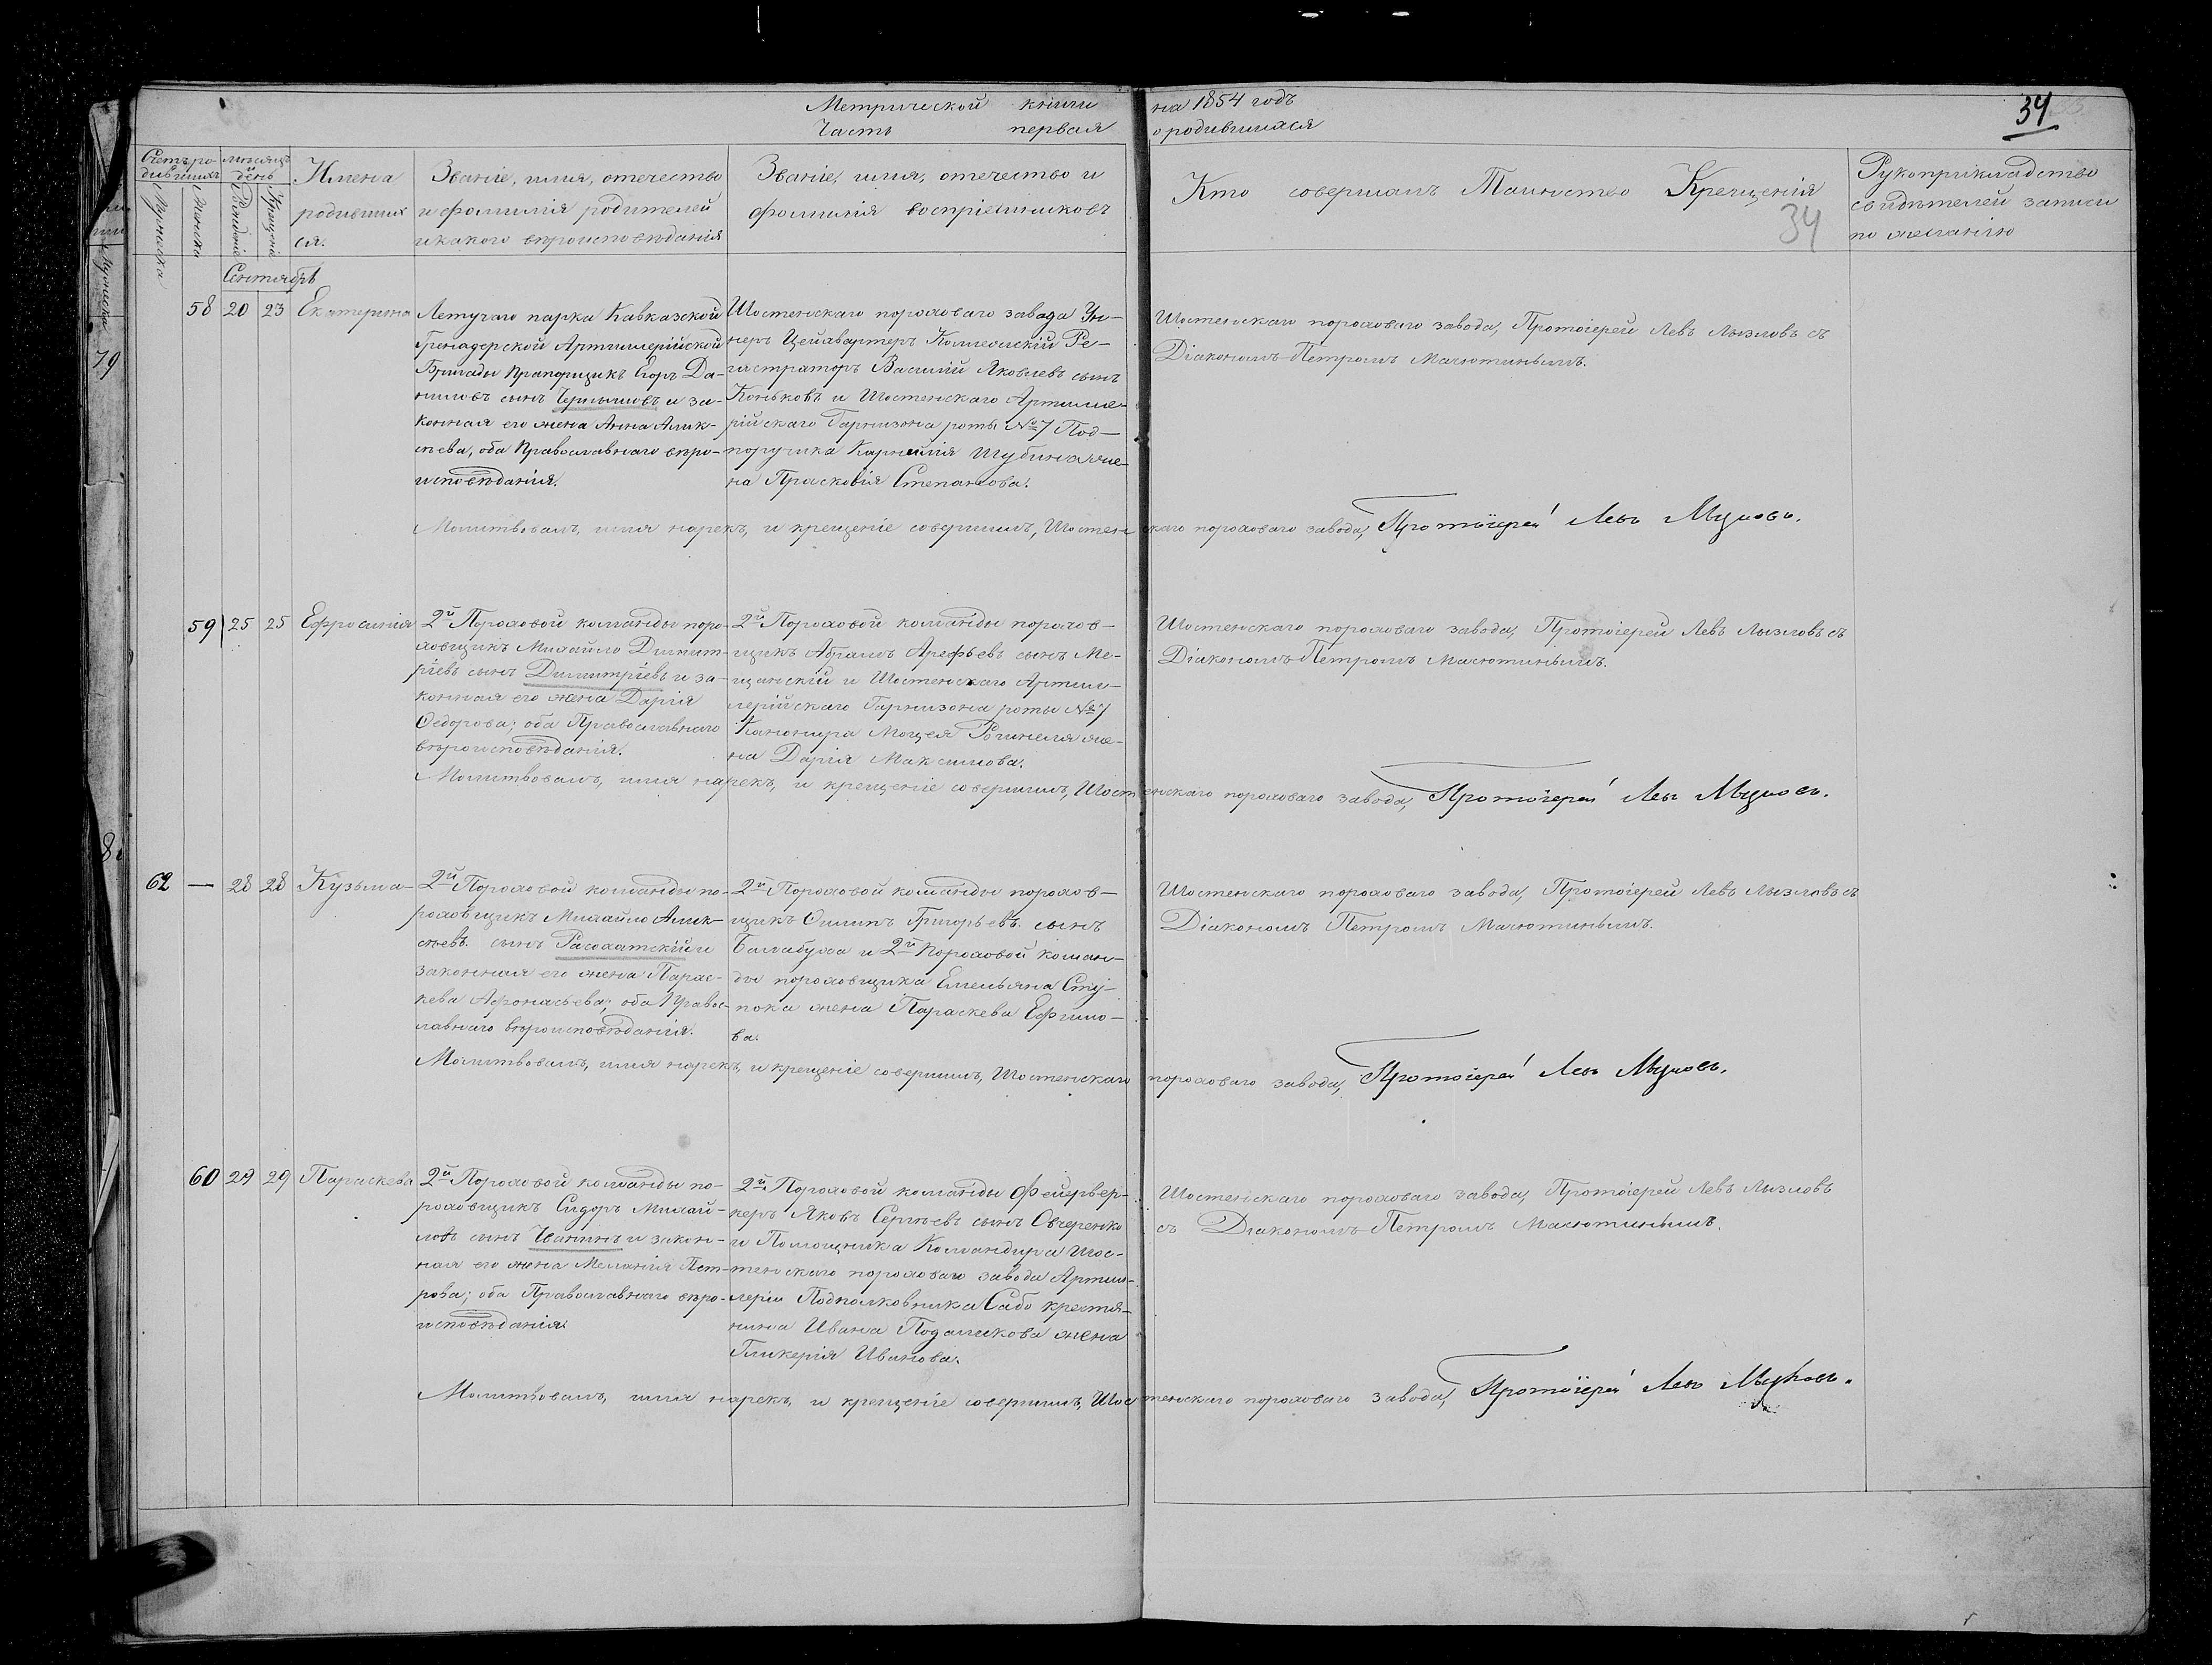 Метрической книги на 1854 годъ
Часть первая о родившихся
34
34
Счетъ родившихся
Мужеска
Женска
мѣсяцъ и день
Рожденіе
Крещенія
Имена
родивших
ся.
Званіе, имя, отечество
и фамилія родителей
и какого вѣроисповѣданія
Званіе, имя, отечество и
фамилія воспріемниковъ
Кто совершалъ Таинство Крещенія
Рукоприкладство
свидѣтелей записи
по желанію
Сентябрь
58 20 23 Екатерина
Летучаго парка Кавказской
Гренадерской Артиллерійской
Бригады Прапорщикъ Егоръ Да-
ниловъ сынъ Чернышовъ и за-
конная его жена Анна Алек-
сѣева, оба Православнаго вѣро-
исповѣданія.
Шостенскаго пороховаго завода Ун-
неръ Цейхвартеръ Коллежскій Ре-
гистраторъ Василій Яковлевъ сынъ
Коньковъ и Шостенскаго Артилле-
рійскаго Гарнизона роты №7 Под-
поручика Карнилія Шубина же-
на Прасковія Степанова.
Шостенскаго пороховаго завода, Протоіерей Левъ Лызловъ съ
Діакономъ Петромъ Малютинымъ.
Молитвовалъ, имя нарекъ, и крещеніе совершилъ, Шостенскаго пороховаго завода, Протоіерей Левъ Лызловъ.
59 25 25 Ефросинія
2й Пороховой команды поро-
ховщикъ Михайло Димит-
ріевъ сынъ Димитріевъ и за-
конная его жена Дарія
Ѳедорова; оба Православнаго
вѣроисповѣданія.
2й Пороховой команды порохов-
щикъ Абрамъ Арефьевъ сынъ Ме-
щанскій и Шостенскаго Артил-
лерійскаго Гарнизона роты №7
Канонира Моцея Рочинеля же-
на Дарія Максимова.
Шостенскаго пороховаго завода, Протоіерей Левъ Лызловъ съ
Діакономъ Петромъ Малютинымъ.
Молитвовалъ, имя нарекъ, и крещеніе совершилъ, Шостенскаго пороховаго завода, Протоіерей Левъ Лызловъ.
62 — 28 28 Кузьма
2й Пороховой команды по-
роховщикъ Михайло Алек-
сѣевъ сынъ Расохатскій и
законная его жена Парас-
кева Афонасьева; оба Правос-
лавнаго вѣроисповѣданія.
2й Пороховой команды порохов-
щикъ Осипъ Григорьевъ сынъ
Балабуха и 2й Пороховой коман-
ды пороховщика Емельяна Сту-
пока жена Параскева Ефимо-
ва.
Шостенскаго пороховаго завода, Протоіерей Левъ Лызловъ съ
Діакономъ Петромъ Малютинымъ.
Молитвовалъ, имя нарекъ, и крещеніе совершилъ, Шостенскаго пороховаго завода, Протоіерей Левъ Лызловъ.
60 29 29 Параскева
2й Пороховой команды по-
роховщикъ Сидоръ Михай-
ловъ сынъ Чванинъ и закон-
ная его жена Меланія Пет-
рова; оба Православнаго вѣро-
исповѣданія.
2й Пороховой команды Фейервер-
керъ Яковъ Сергѣевъ сынъ Овчеренко
и Помощника Командира Шос-
тенскаго пороховаго завода Артил-
леріи Подполковника Сабо крестья-
нина Ивана Подамекова жена
Гликерія Иванова.
Шостенскаго пороховаго завода, Протоіерей Левъ Лызловъ
съ Діакономъ Петромъ Малютинымъ.
Молитвовалъ, имя нарекъ, и крещеніе совершилъ, Шостенскаго пороховаго завода, Протоіерей Левъ Лызловъ.